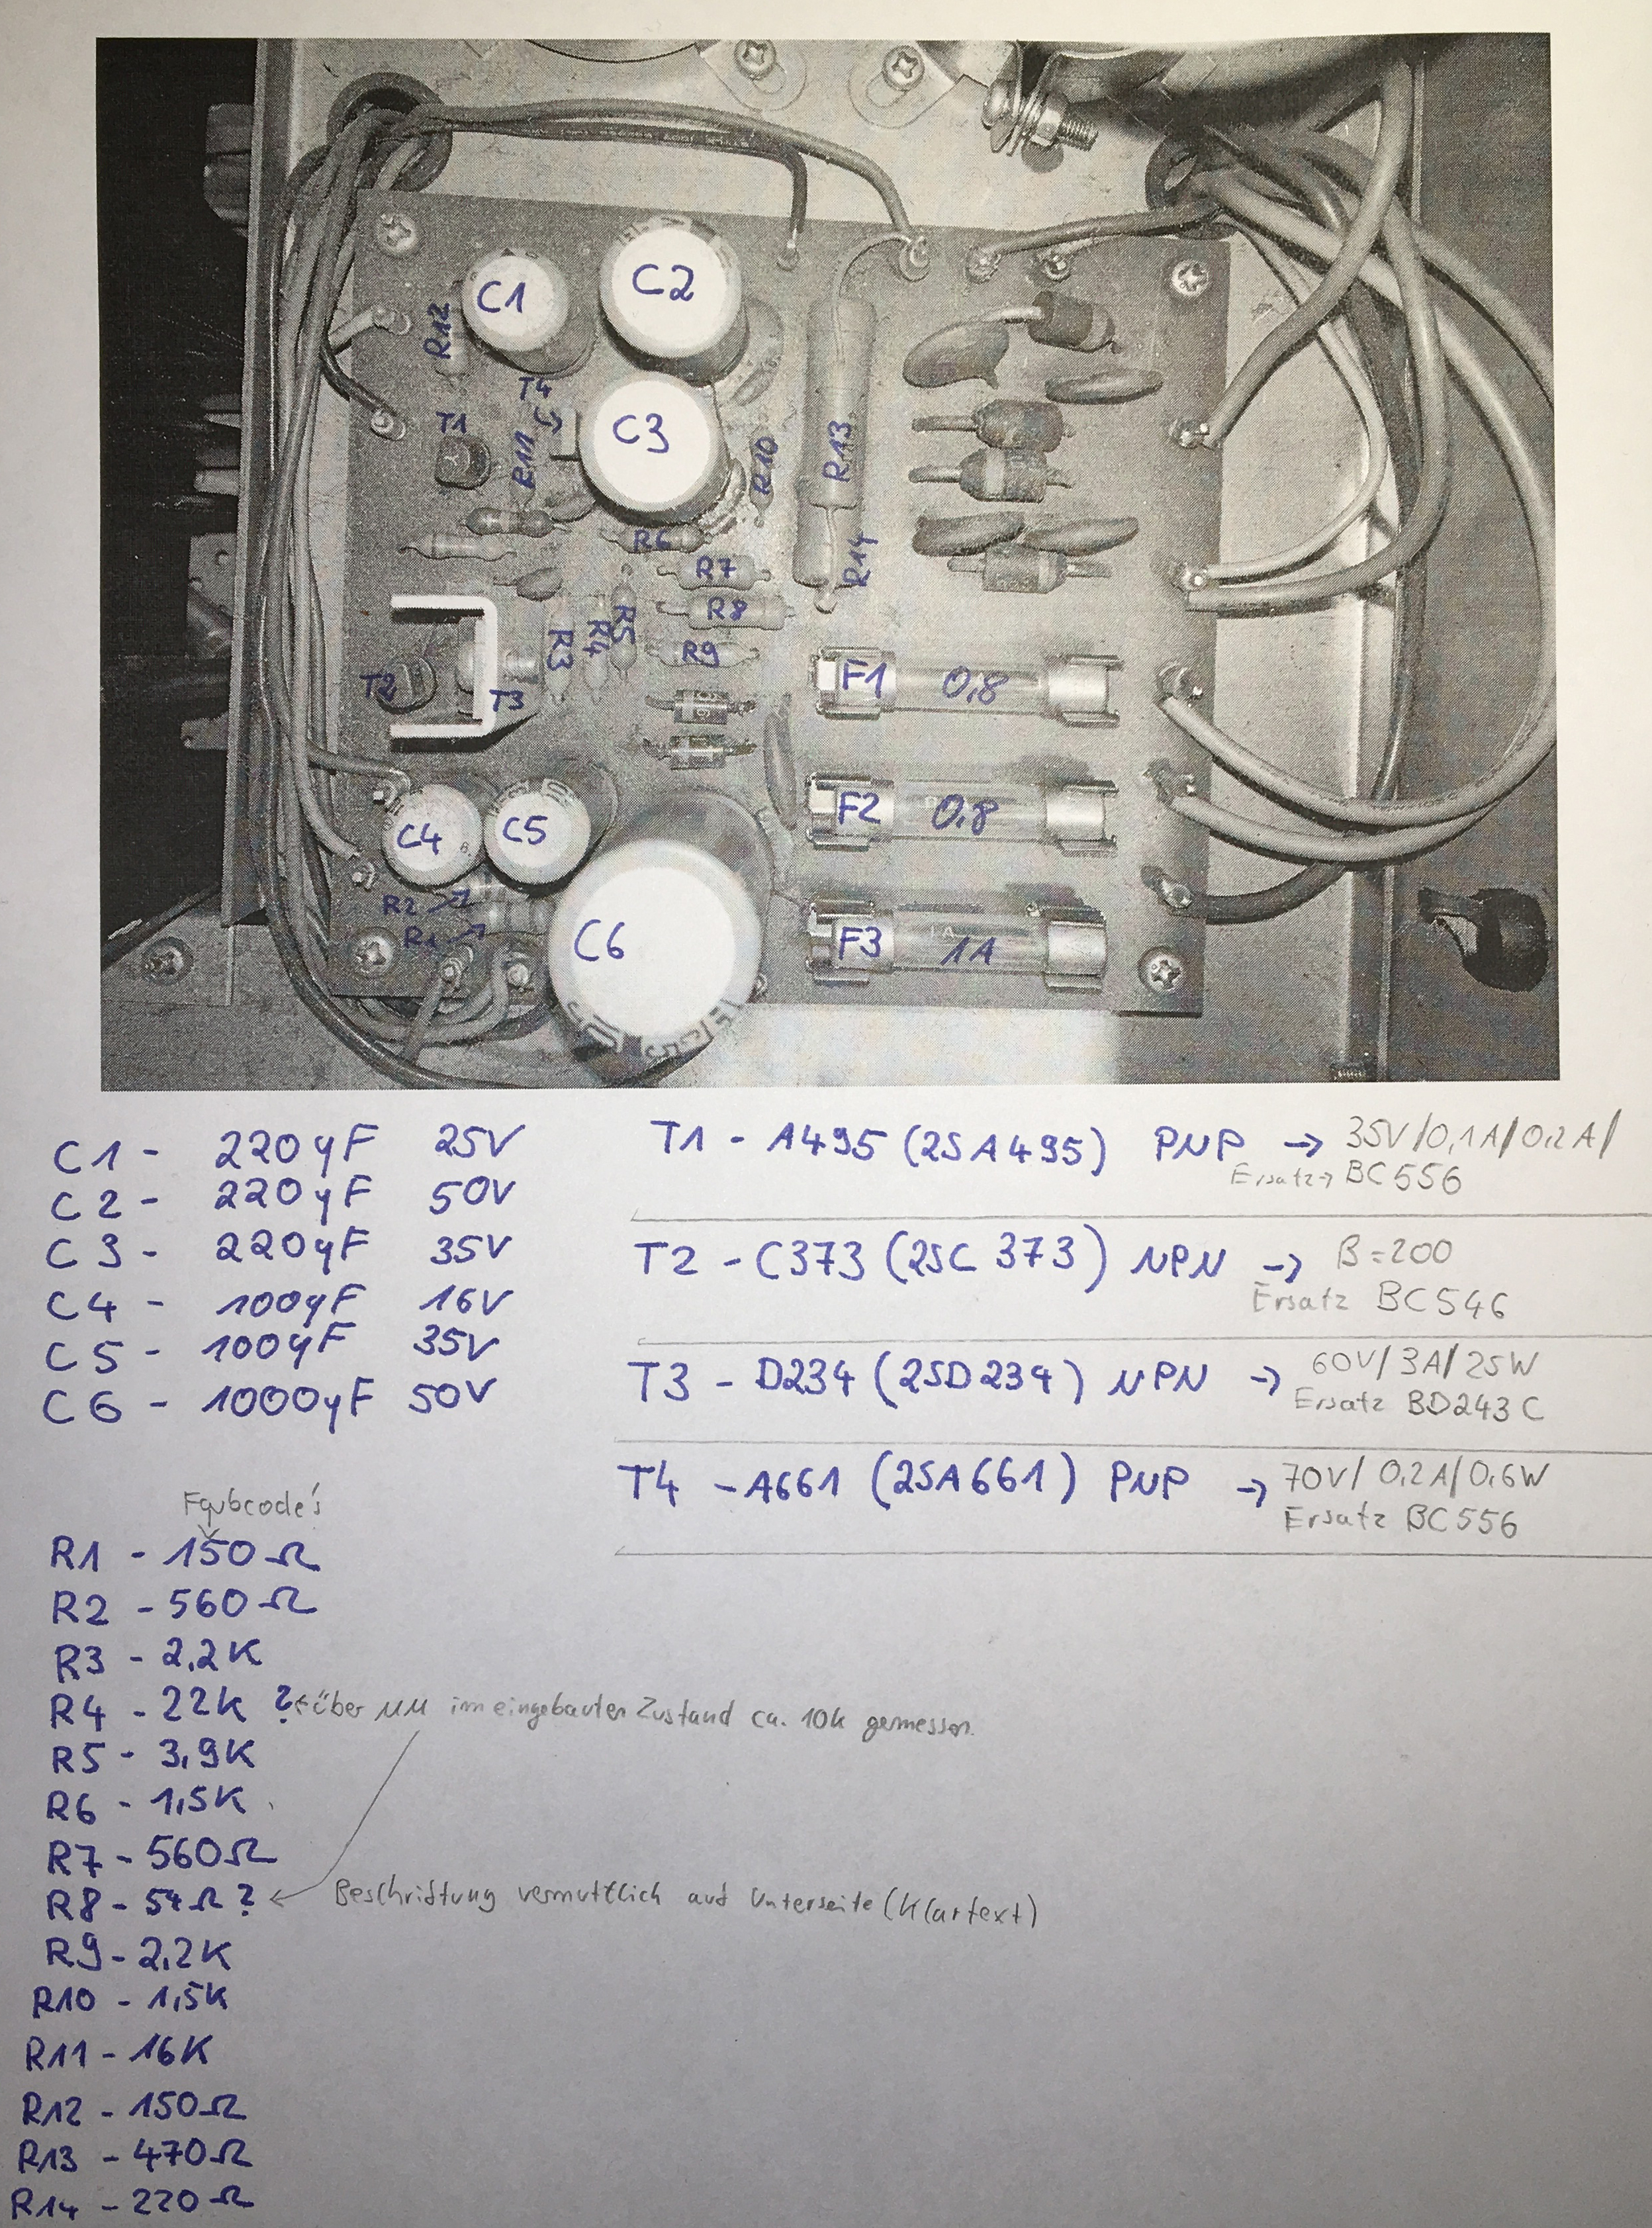 C1
C2
R12
T4
C3
T1
R11
R10
R13
R6
R7
R14
R8
R5
R4
R3
R9
T2
T3
F1 0,8
F2 0,8
C4
C5
R2
R1
C6
F3 1A
C1 - 220µF 25V
C2 - 220µF 50V
C3 - 220µF 35V
C4 - 100µF 16V
C5 - 100µF 35V
C6 - 1000µF 50V
T1 - A495 (2SA495) PNP → 35V/0,1A/0,2A/
Ersatz → BC556
T2 - C373 (2SC373) NPN → B=200
Ersatz BC546
T3 - D234 (2SD234) NPN → 60V/3A/25W
Ersatz BD243C
T4 - A661 (2SA661) PNP → 70V/0,2A/0,6W
Ersatz BC556
Farbcode's
R1 - 150Ω
R2 - 560Ω
R3 - 2,2K
R4 - 22K ? ← über MM im eingebauten Zustand ca. 10k gemessen.
R5 - 3,9K
R6 - 1,5K
R7 - 560Ω
R8 - 54Ω ? ← Beschriftung vermuttlich auf Unterseite (Klartext)
R9 - 2,2K
R10 - 1,5K
R11 - 16K
R12 - 150Ω
R13 - 470Ω
R14 - 220Ω